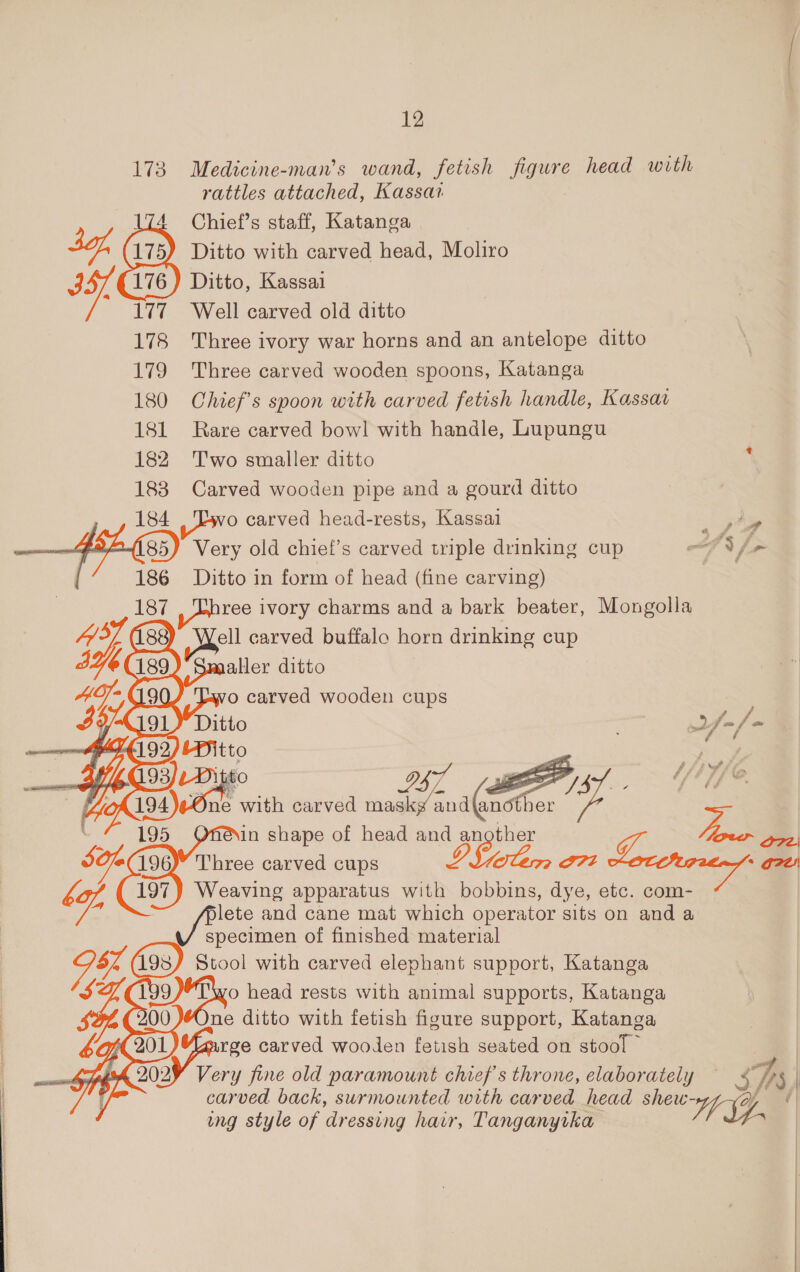 12
173 Medicine-man's wand, fetish figure head with
rattles attached, Kassai
174 Chief's staff, Katanga
30/- 175 Ditto with carved head, Moliro
35/- 176 Ditto, Kassai
177 Well carved old ditto
178 Three ivory war horns and an antelope ditto
179 Three carved wooden spoons, Katanga
180 Chief's spoon with carved fetish handle, Kassai
181 Rare carved bowl with handle, Lupungu
182 Two smaller ditto
183 Carved wooden pipe and a gourd ditto
184 Two carved head-rests, Kassai
185 Very old chief's carved triple drinking cup
186 Ditto in form of head (fine carving)
187 Three ivory charms and a bark beater, Mongolla
188 Well carved buffalo horn drinking cup
189 Smaller ditto
190 Two carved wooden cups
191 Ditto
192 Ditto
193 Ditto
194 One with carved masks and another
195 One in shape of head and another
196 Three carved cups
Stolen on
60/- 197 Weaving apparatus with bobbins, dye, etc. com-
plete and cane mat which operator sits on and a
specimen of finished material
198 Stool with carved elephant support, Katanga
199 Two head rests with animal supports, Katanga
200 One ditto with fetish figure support, Katanga
201 Large carved wooden fetish seated on stool
202 Very fine old paramount chief's throne, elaborately
carved back, surmounted with carved head shew-
ing style of dressing hair, Tanganyika